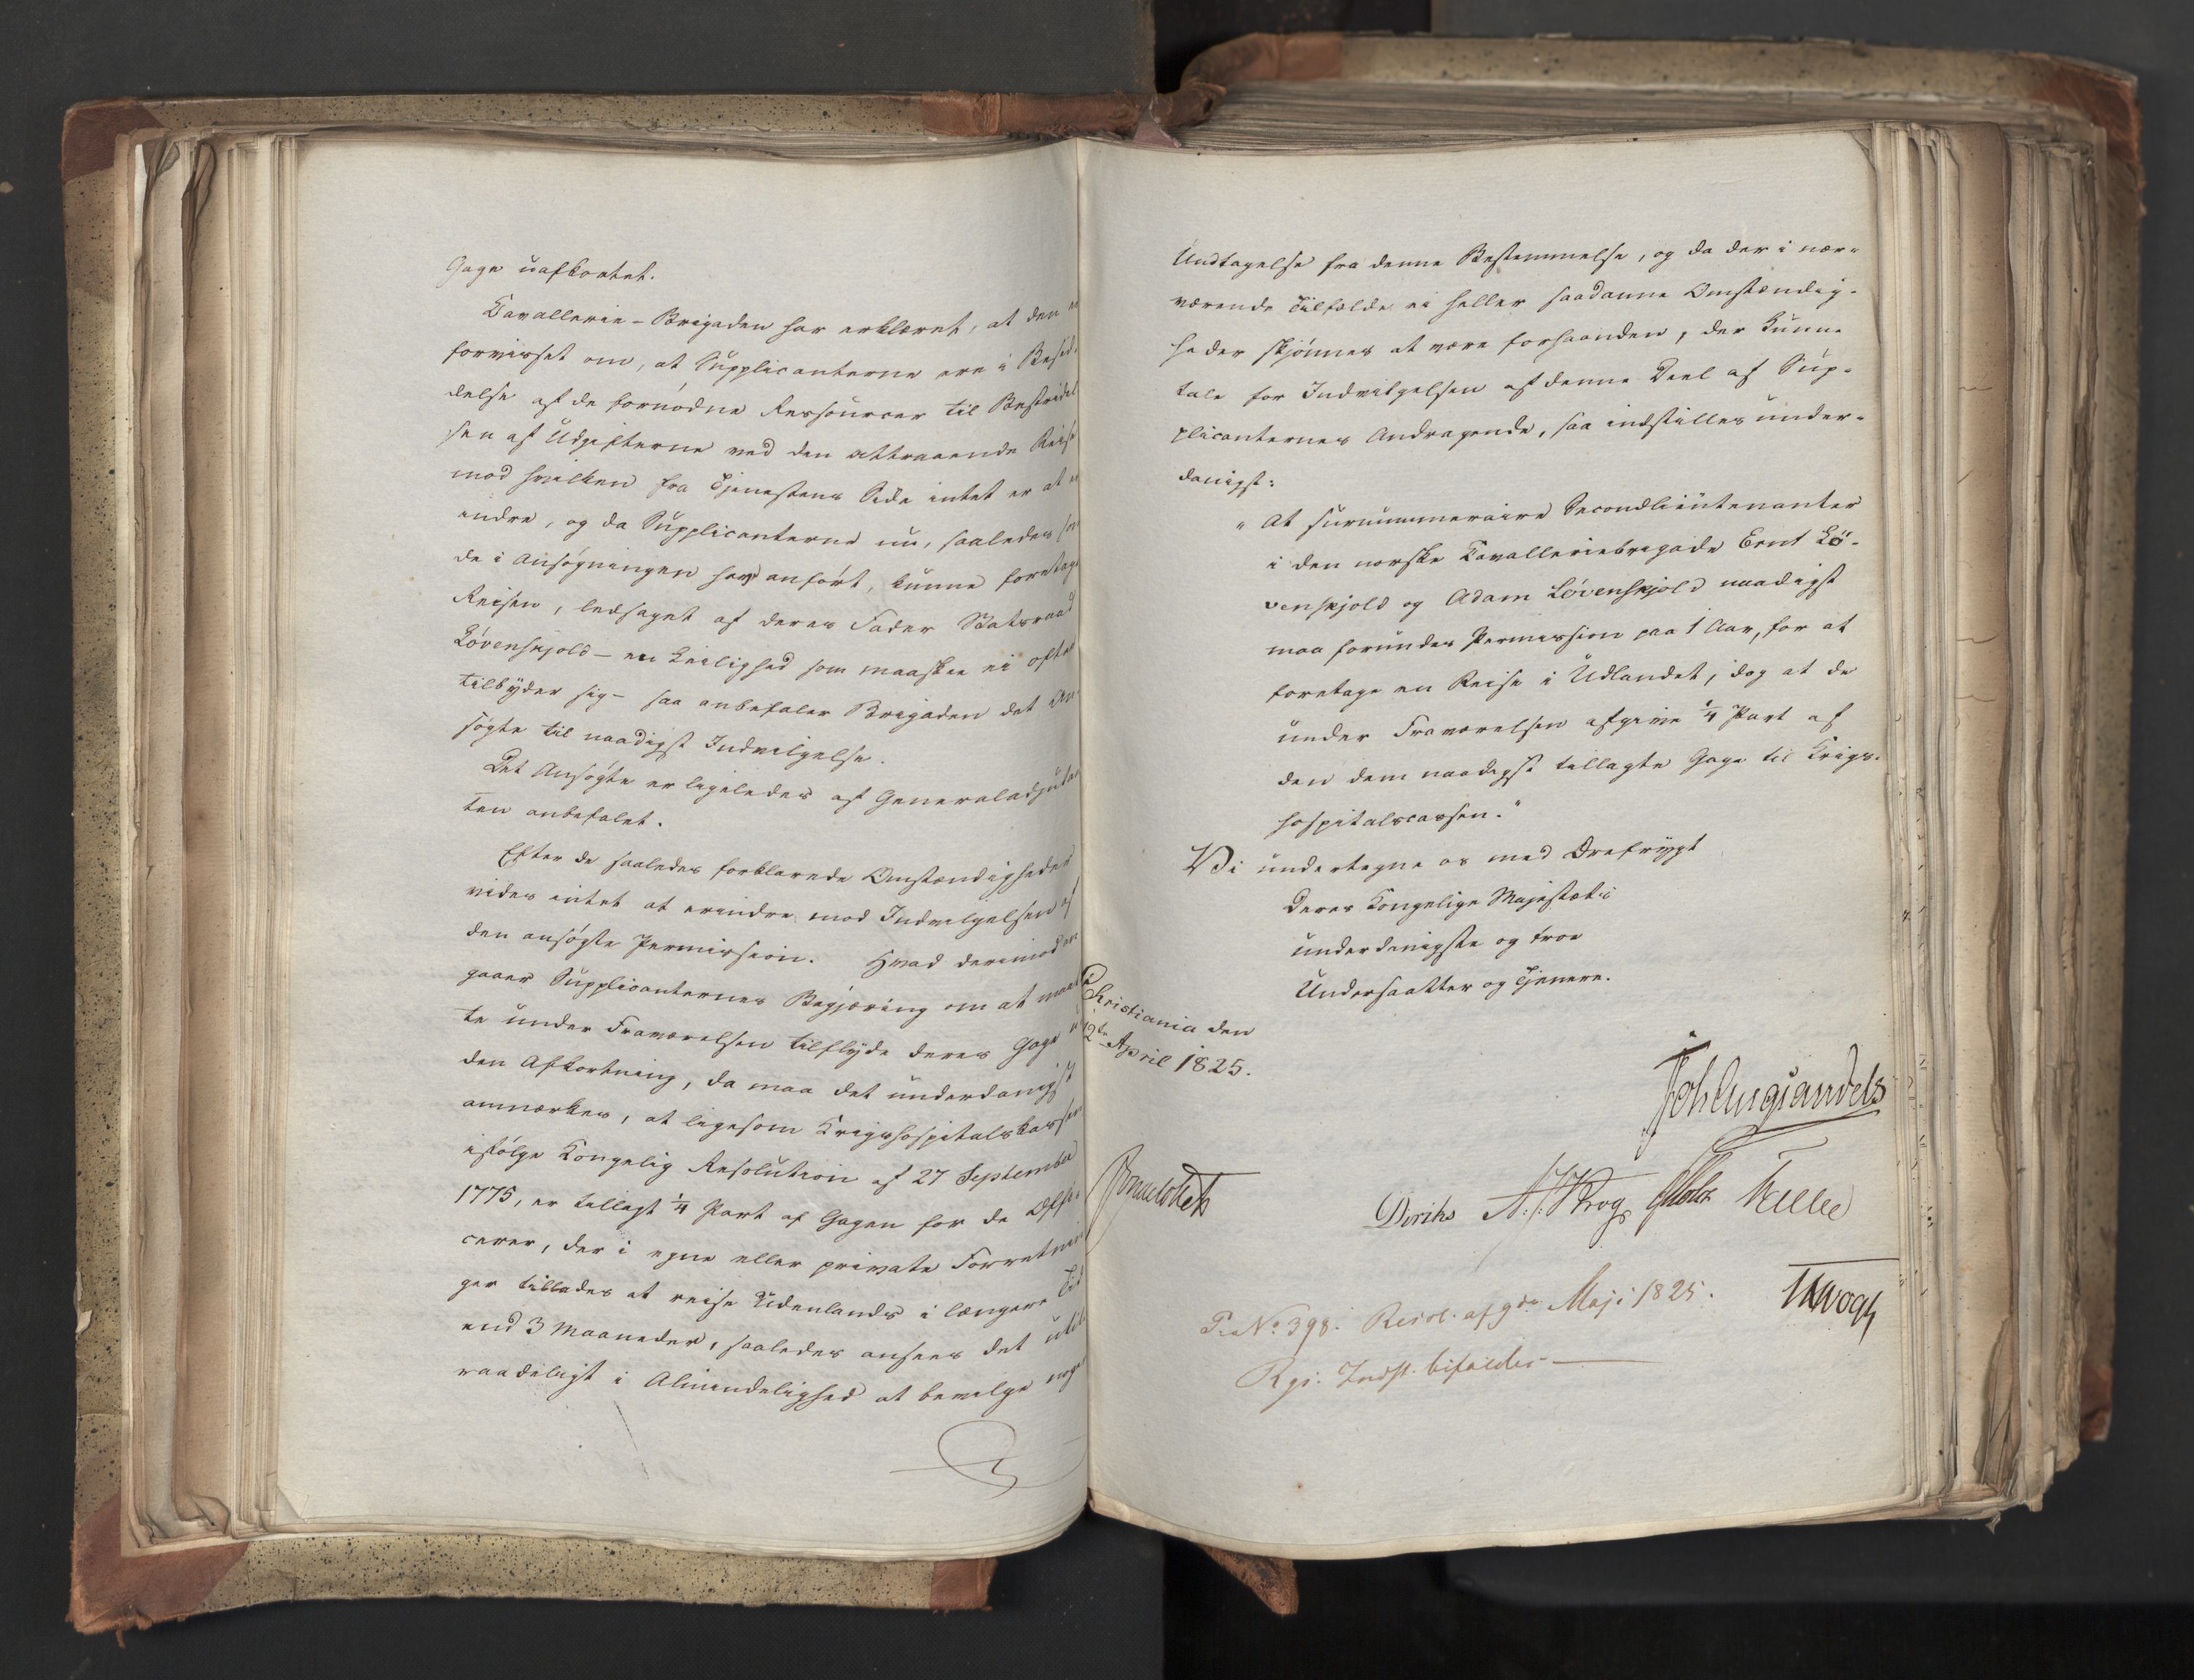 Gage uafkortet.
Cavallerie-Brigaden har erklæret, at den er
forvisset om, at Supplicanterne ere i Besid-
delse af de fornødne Ressourcer til Bestridel
sen af Udgifterne ved den attraaende Reise
mod hvilken fra Tjenestens Side intet er at er
indre, og da Supplicanterne nu, saaledes som
de i Ansøgningen have anført, kunne foretage
Reisen, ledsaget af deres Fader Statsraad
Løvenskjold – en Leilighed som maaskee ei oftere
tilbyder sig – saa anbefaler Brigaden det An-
søgte til naadigst Indvilgelse.
Det Ansøgte er ligeledes af Generaladjutan
ten anbefalet.
Efter de saaledes forklarede Omstændigheder
vides intet at erindre mod Indvilgelsen af
den ansøgte Permission. Hvad derimod an
gaaer Supplicanternes Begjæring om at maat
te under Fraværelsen tilflyde deres Gage u
den Afkortning, da maa det underdanigst
anmærkes, at ligesom Krigshospitalskassen
ifølge Kongelig Resolution af 27 September
1775, er tillagt 1/4 Part af Gagen for de Offi-
cerer, der i egne eller private Forretnin
ger tillades at reise Udenlands i længere Tid
end 3 Maaneder, saaledes ansees det util-
raadeligt i Almindelighed at bevilge nogen
Undtagelse fra denne Bestemmelse, og da der i nær-
værende Tilfælde ei heller saadanne Omstændig-
heder skjønnes at være forhaanden, der kunne
tale for Indvilgelsen af denne Deel af Sup-
plicanternes Andragende, saa indstilles under-
danigst:
"At surnummeraire Secondlieutenanter
i den norske Cavalleriebrigade Ernst Lø-
venskjold og Adam Løvenskjold naadigst
maa forundes Permission paa 1 Aar, for at
foretage en Reise i Udlandet, dog at de
under Fraværelsen afgive 1/4 Part af
den dem naadigst tillagte Gage til Krigs-
hospitalscassen."
Vi undertegne os med Ærefrygt
Deres Kongelige Majestæts
underdanigste og troe
Undersaatter og Tjenere.
Christiania den
12te April 1825.
Joh Aug Sandels
Diriks
Krog
Motzfeldt
Treschow
Fasting
P. No 398. Resol. af 9de Maji 1825.
Rgs. Indst. bifaldes